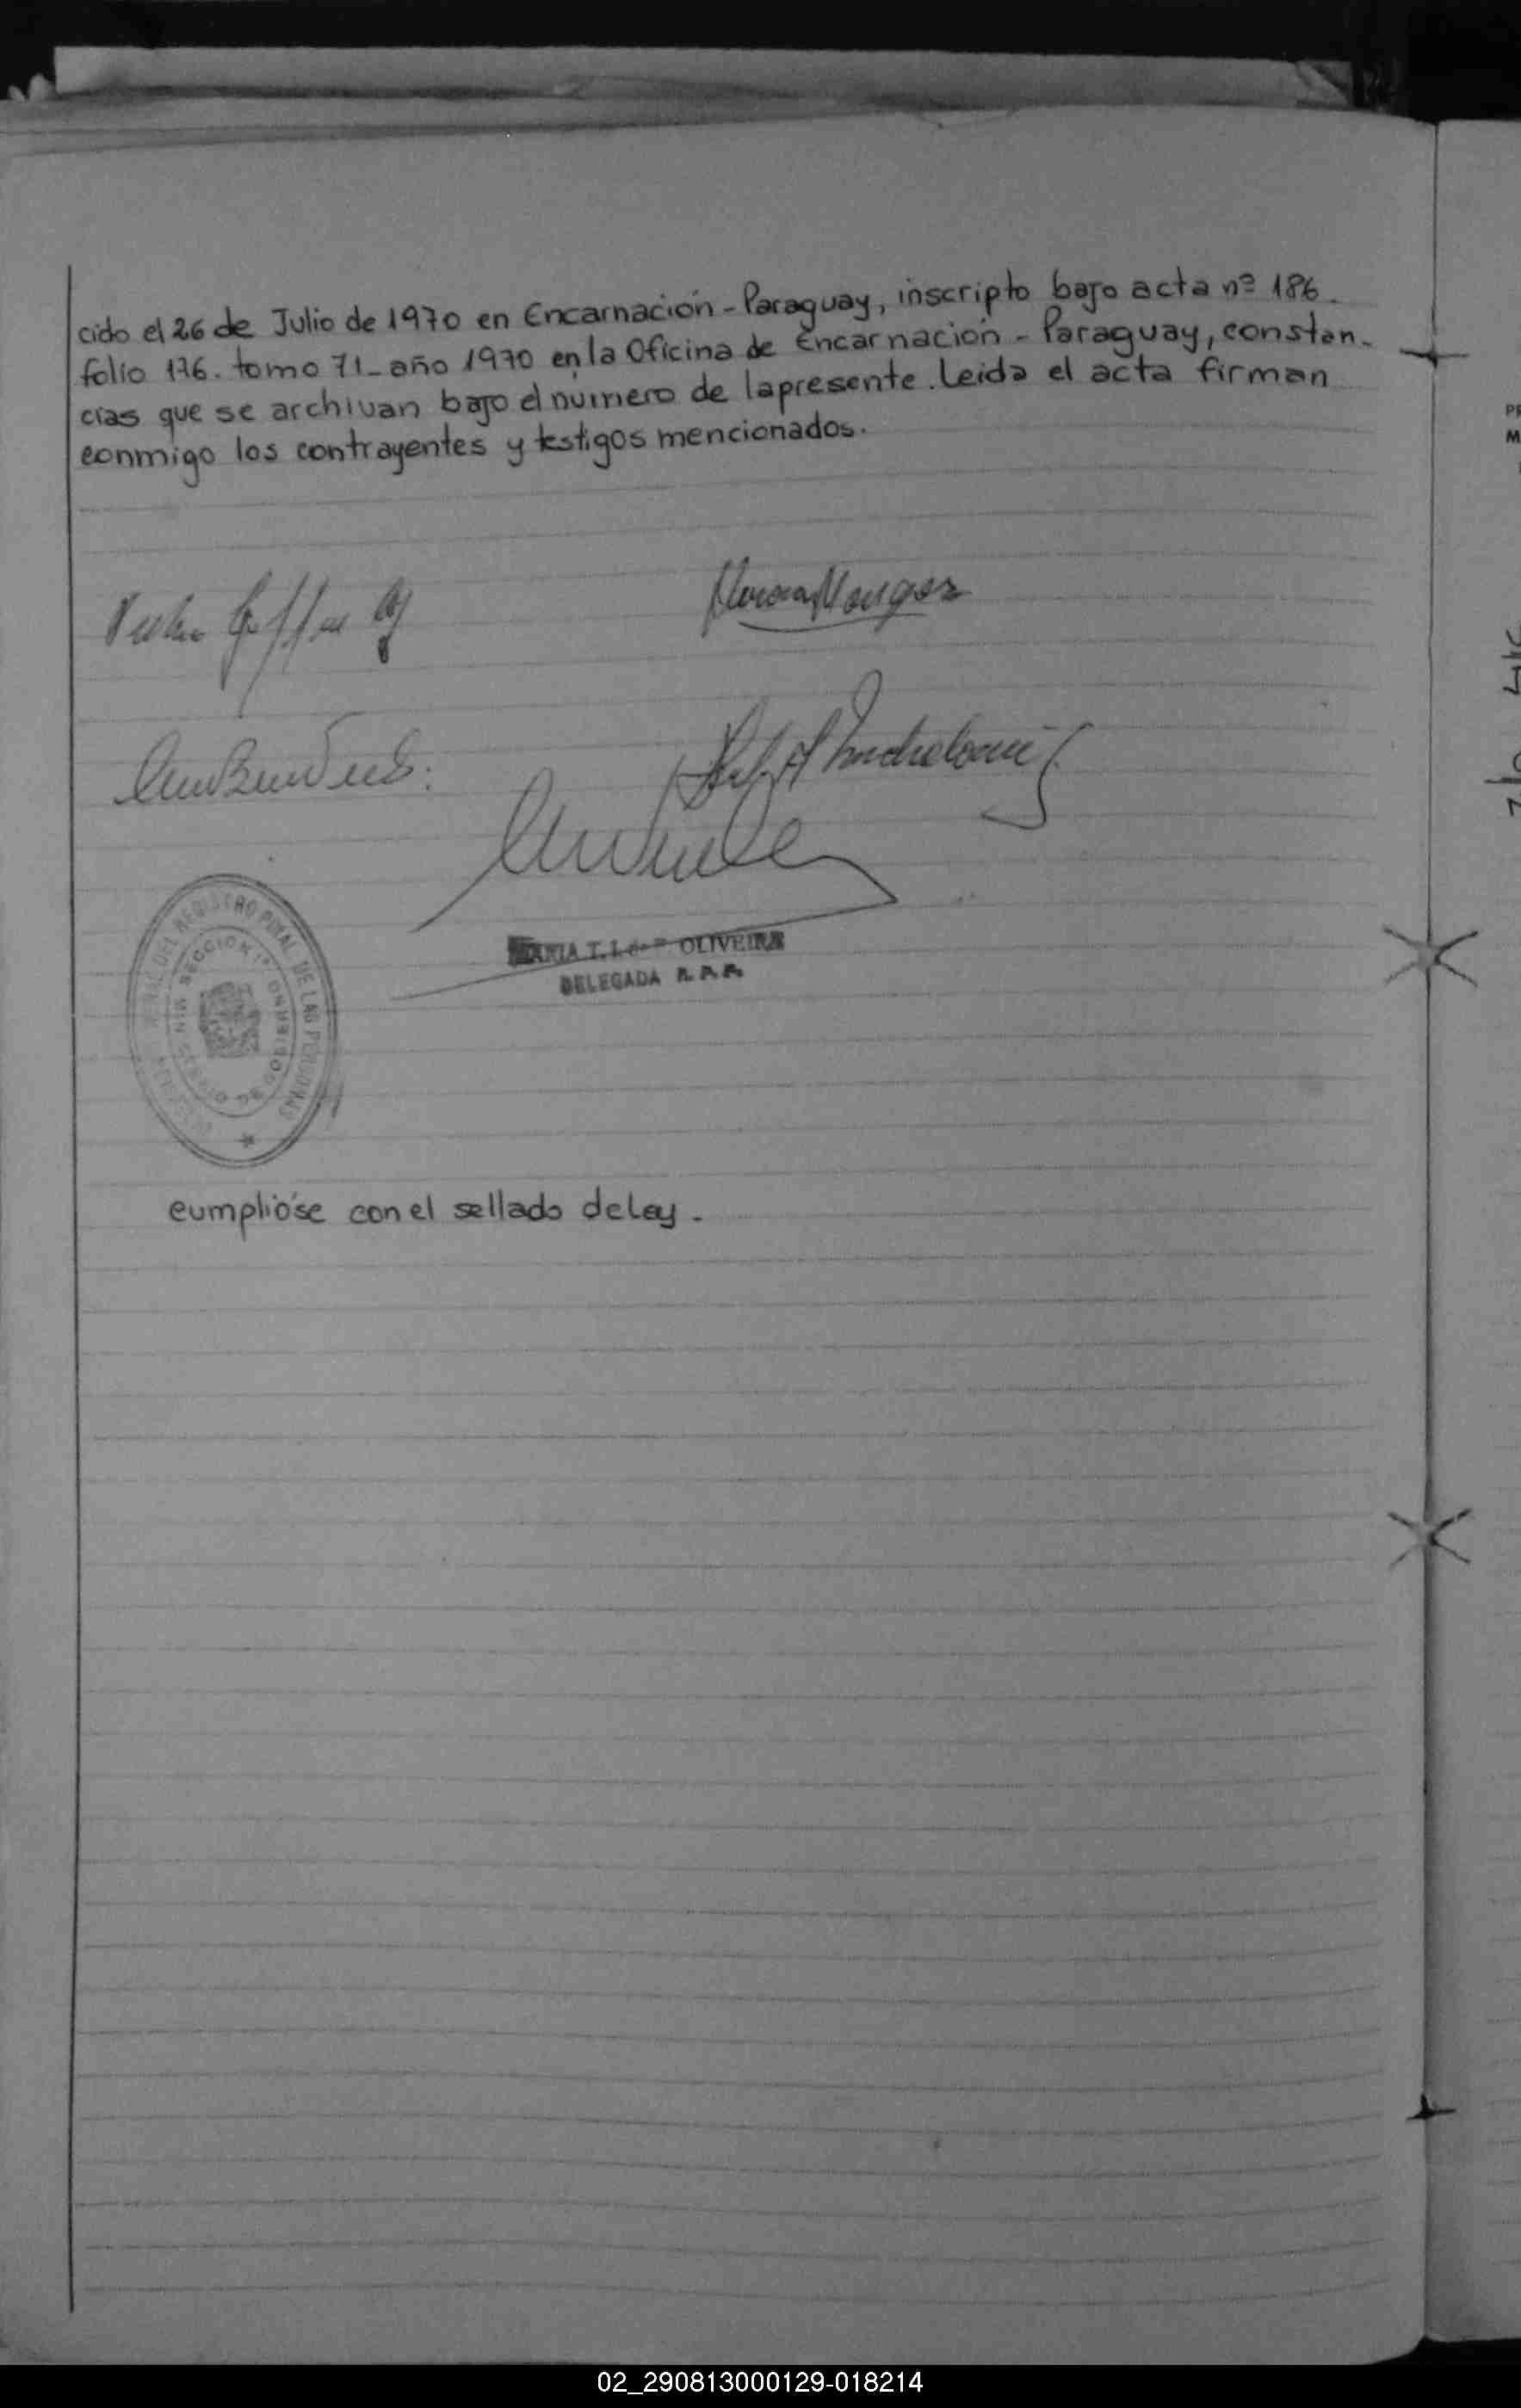 cido el 26 de Julio de 1970 en Encarnación - Paraguay, inscripto bajo acta nº 186.
folio 176. tomo 71 - año 1970 en la Oficina de Encarnación - Paraguay, constan-
cias que se archivan bajo el número de la presente. Leida el acta firman
conmigo los contrayentes y testigos mencionados.
MARIA T. OLIVEIRA
DELEGADA
REGISTRO DE LAS PERSONAS
SECCION 1ª
cumplióse con el sellado de Ley.
02_290813000129-018214